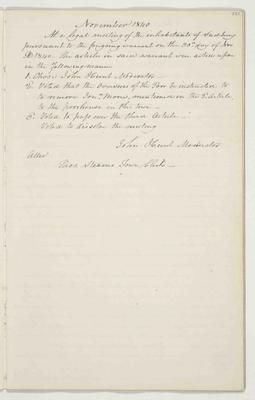 November 1840
At a legal meeting of the inhabitants of Sudbury
pursuant to the forgoing warrant on the 30th day of Nov
AD 1840. The articles in said warrant were acted upon
in the following manner
1. Chose John Hunt Moderator
2. Voted that the overseers of the Poor be instructed to
to remove mentioned in the 2d Article
to the poorhouse in this town
3. Voted to pass over the third Article
Voted to dissolve the meeting
John Hunt Moderator
Attest
Town Clerk